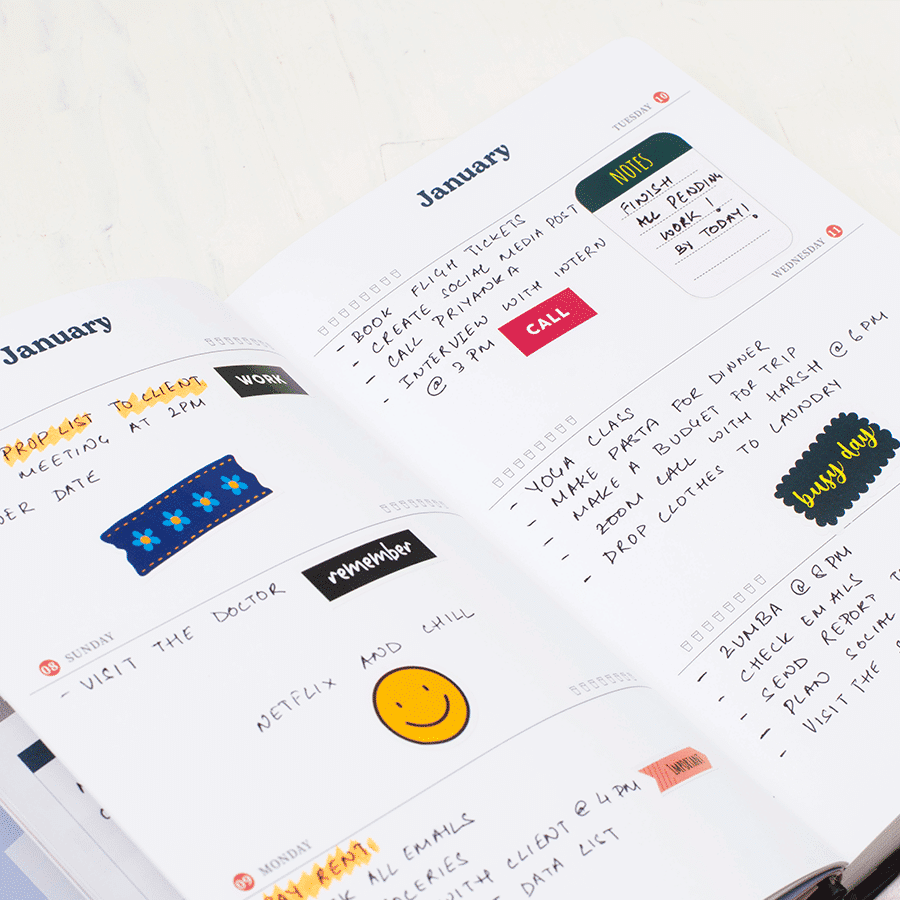 January
WORK
PROP LIST TO CLIENT
MEETING AT 2PM
DATE
08 SUNDAY
remember
- VISIT THE DOCTOR
NETFLIX AND CHILL
09 MONDAY
IMPORTANT
PAY RENT
ALL EMAILS
WITH CLIENT @ 4PM
DATA LIST
January
TUESDAY 10
- BOOK FLIGH TICKETS
- CREATE SOCIAL MEDIA POST
- CALL PRIYANKA
- INTERVIEW WITH INTERN
@ 3 PM
CALL
NOTES
FINISH
ALL PENDING
WORK !
BY TODAY!
WEDNESDAY 11
- YOGA CLASS
- MAKE PASTA FOR DINNER
- MAKE A BUDGET FOR TRIP
- ZOOM CALL WITH HARSH @ 6 PM
- DROP CLOTHES TO LAUNDRY
busy day
- ZUMBA @ 8 PM
- CHECK EMAILS
- SEND REPORT
- PLAN SOCIAL
- VISIT THE